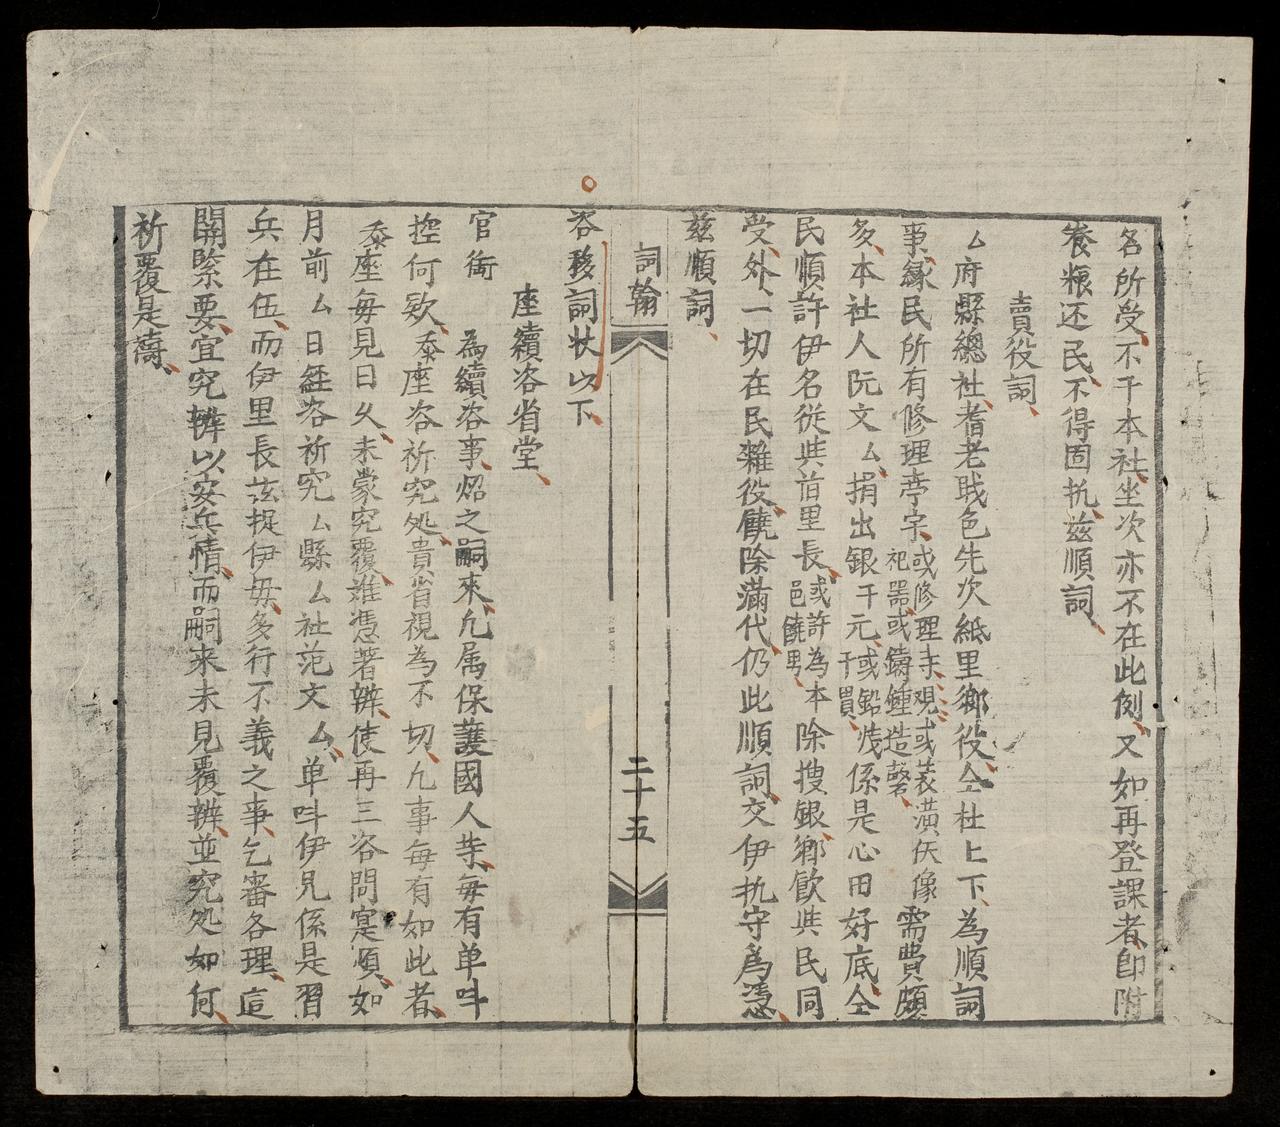 名所受不干本社坐次亦不在此例又如再登課者即附
養粮还民不得固执兹順詞
賣役詞
厶府縣總社耆老戝色先次紙里鄉役仝社上下為順詞
事縁民所有修理亭宇或修理寺观或装潢佛像祀器或鑄鍾造磬需費頗
多本社人阮文厶捐出銀千元或鉛錢千貫係是心田好底仝
民順許伊名從與首里長或許為本邑饒男除搜銀鄉飲與民同
受外一切在民雜役饒除滿代仍此順詞交伊执守為憑
兹順詞
詞翰
二十五
咨移詞状以下
座續咨省堂
官衙 為續咨事炤之嗣來凡属保護國人等每有单呌
控何欵桼座咨祈究処貴省視為不切凡事每有如此者
桼座每見日久未蒙究覆难憑著辨使再三咨問寔煩如
月前厶日経咨祈究厶縣厶社范文厶单呌伊兄係是習
兵在伍而伊里長該捉伊毋多行不義之事乞審各理這
開緊要宜究辨以安兵情而嗣来未見覆辨並究処如何
祈覆是禱